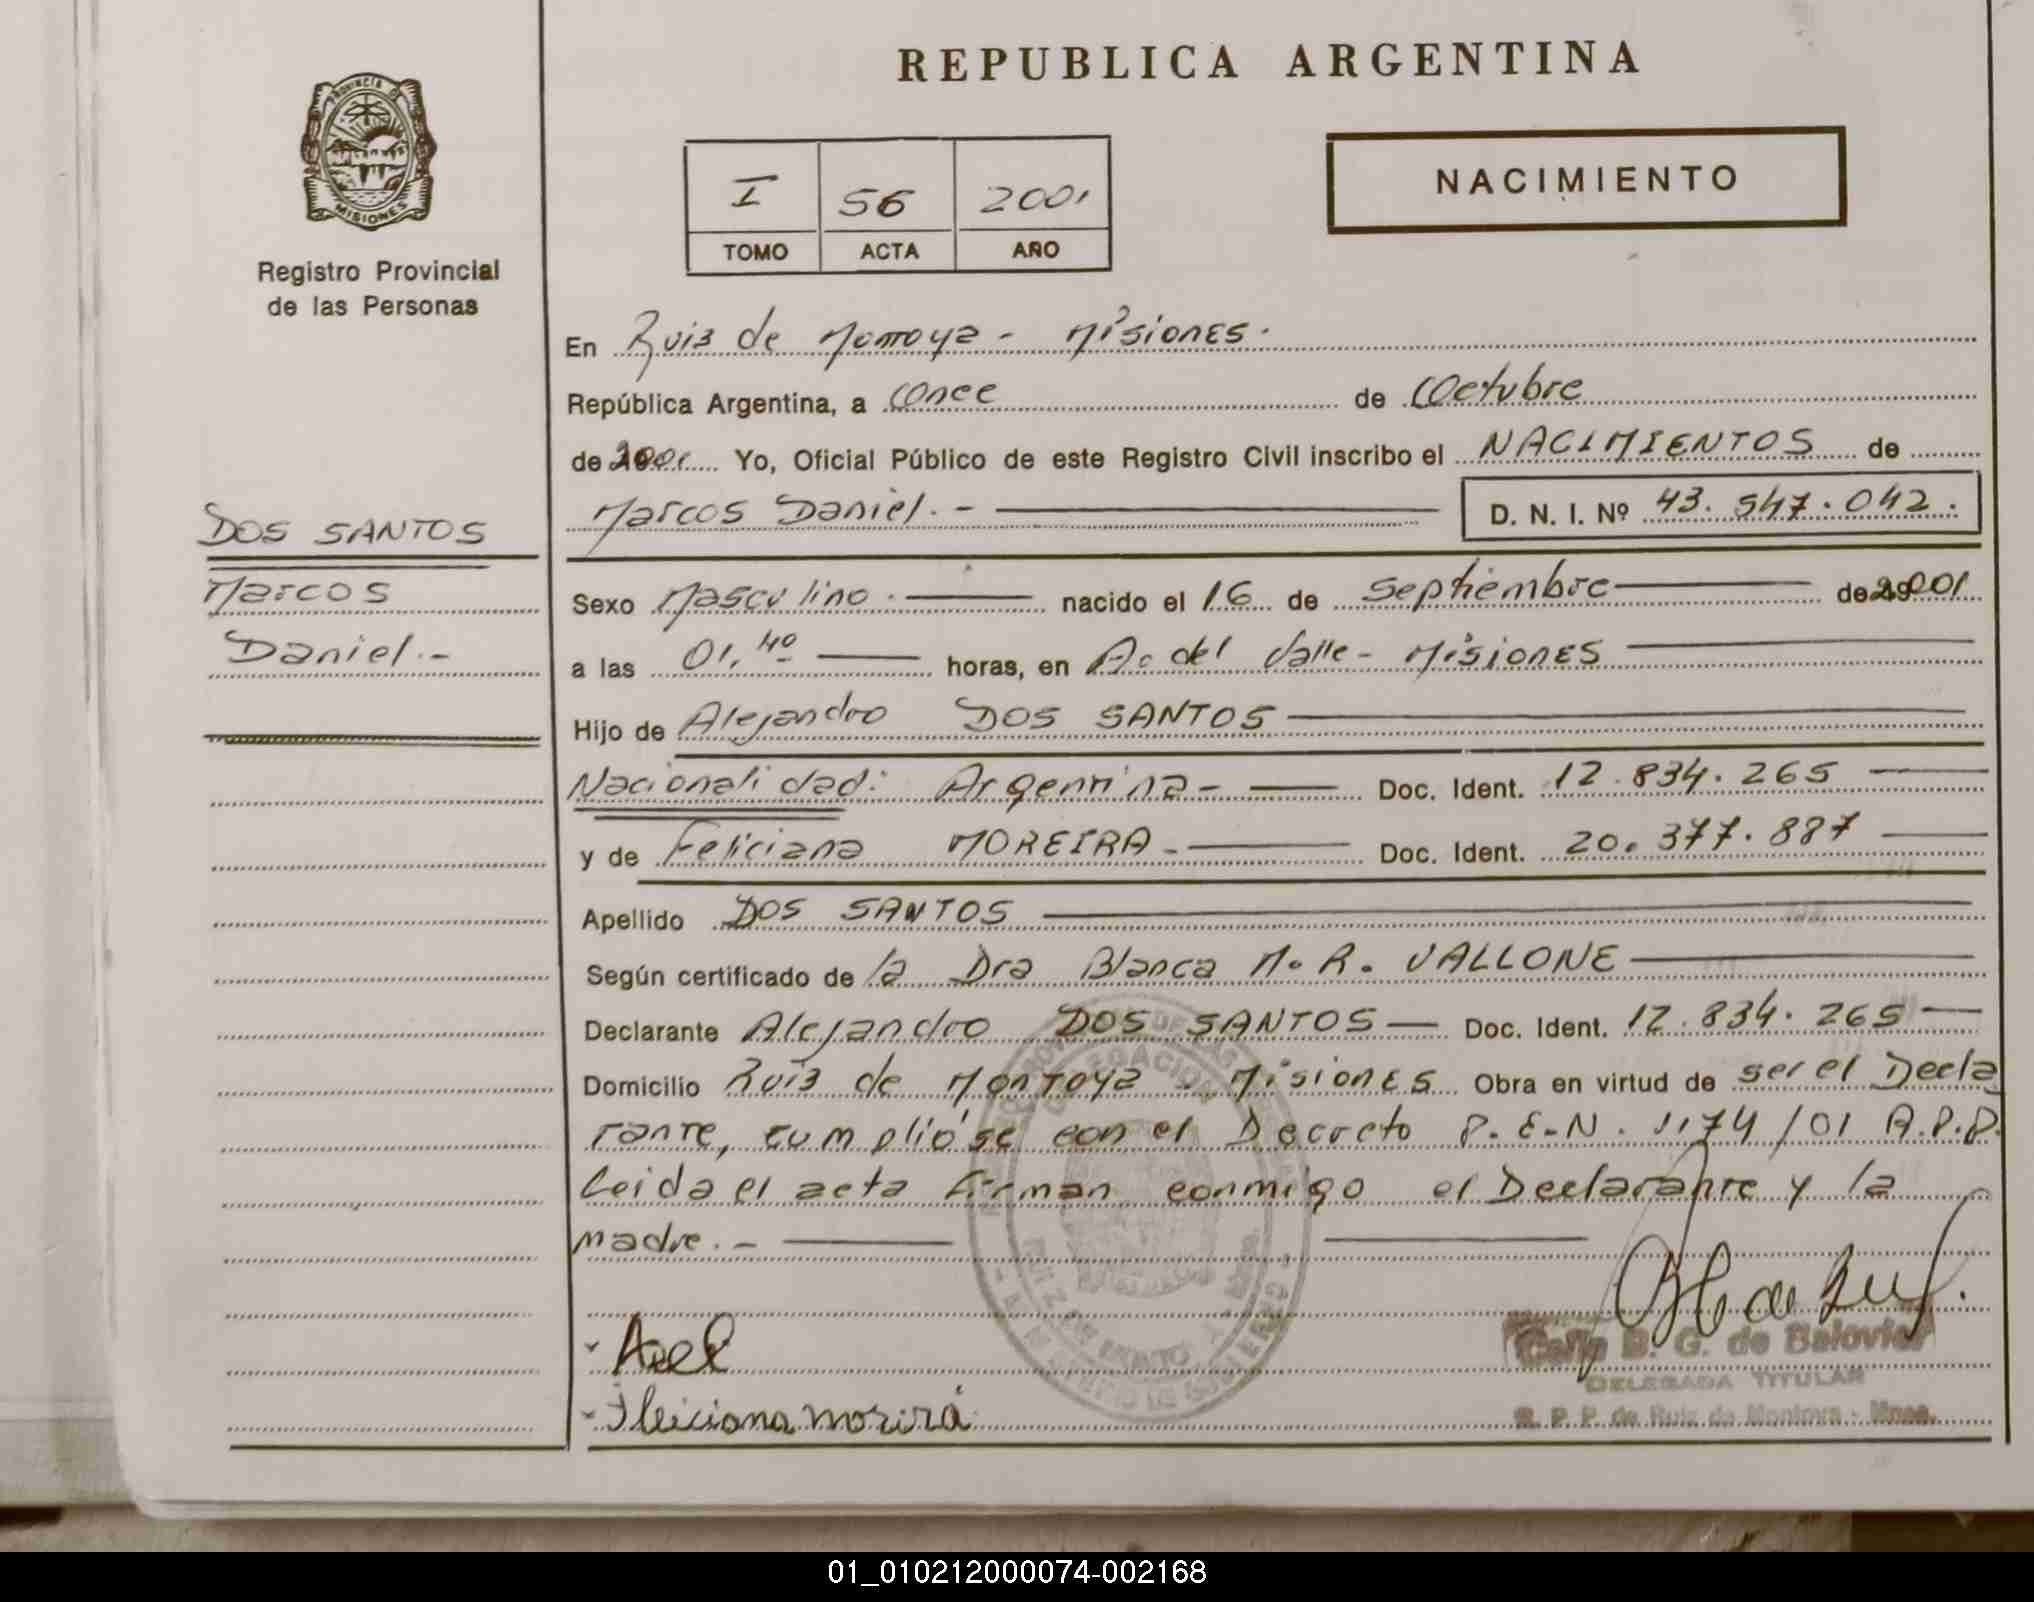 REPUBLICA ARGENTINA
PROVINCIA D
MISIONES
Registro Provincial
de las Personas
I 56 2001
TOMO ACTA AÑO
NACIMIENTO
En Ruiz de Montoya - Misiones.
República Argentina, a Once de Octubre
de 2001 Yo, Oficial Público de este Registro Civil inscribo el NACIMIENTOS de
Marcos Daniel. - D. N. I. Nº 43.547.042.
DOS SANTOS
Marcos
Daniel.-
Sexo Masculino. nacido el 16 de Septiembre de 2001
a las 01,40 horas, en Ao del Valle - Misiones
Hijo de Alejandro DOS SANTOS
Nacionalidad: Argentina - Doc. Ident. 12.834.265
y de Feliciana MOREIRA - Doc. Ident. 20.377.887
Apellido DOS SANTOS
Según certificado de la Dra Blanca M. R. VALLONE
Declarante Alejandro DOS SANTOS - Doc. Ident. 12.834.265
Domicilio Ruiz de Montoya - Misiones Obra en virtud de ser el Decla
rante, cumplióse con el Decreto P.E.N. 1174/01 A.P.P.
Leida el acta firman conmigo el Declarante y la
madre. -
Feliciana morira
B. G. de Balovier
DELEGADA TITULAR
R. P. P. de Ruiz de Montoya - Mnes.
01_010212000074-002168